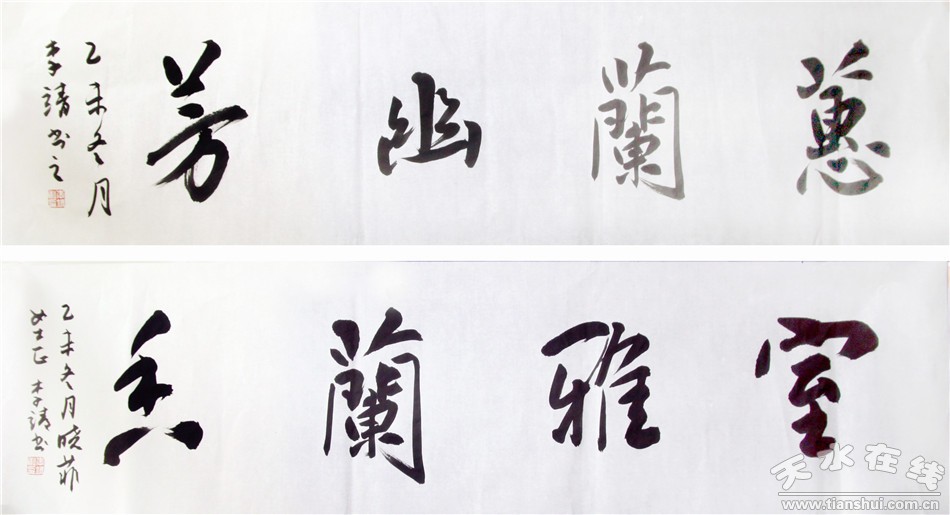 蕙蘭幽芳
乙未冬月
李靖书之
室雅蘭香
乙未冬月晓菲
女士正 李靖书
天水在线
www.tianshui.com.cn